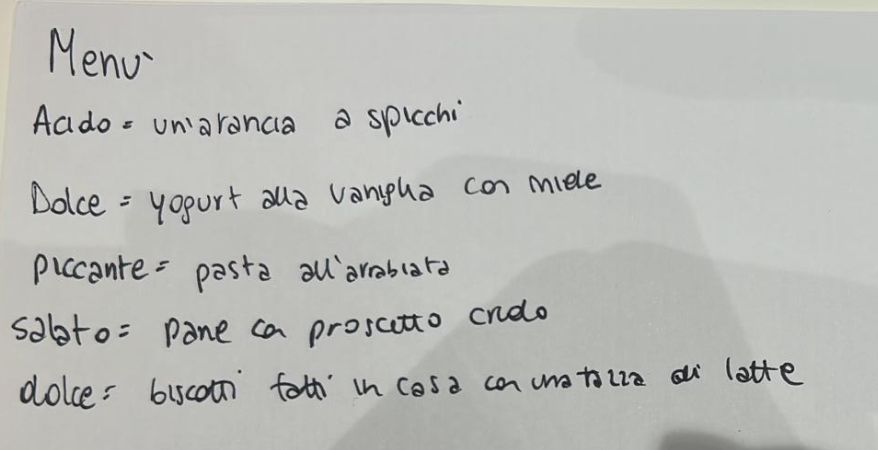 Menù
Acido = un'arancia a spicchi
Dolce = yogurt alla vaniglia con miele
piccante = pasta all'arrabiata
salato = pane con prosciutto crudo
dolce = biscotti fatti in casa con una tazza di latte